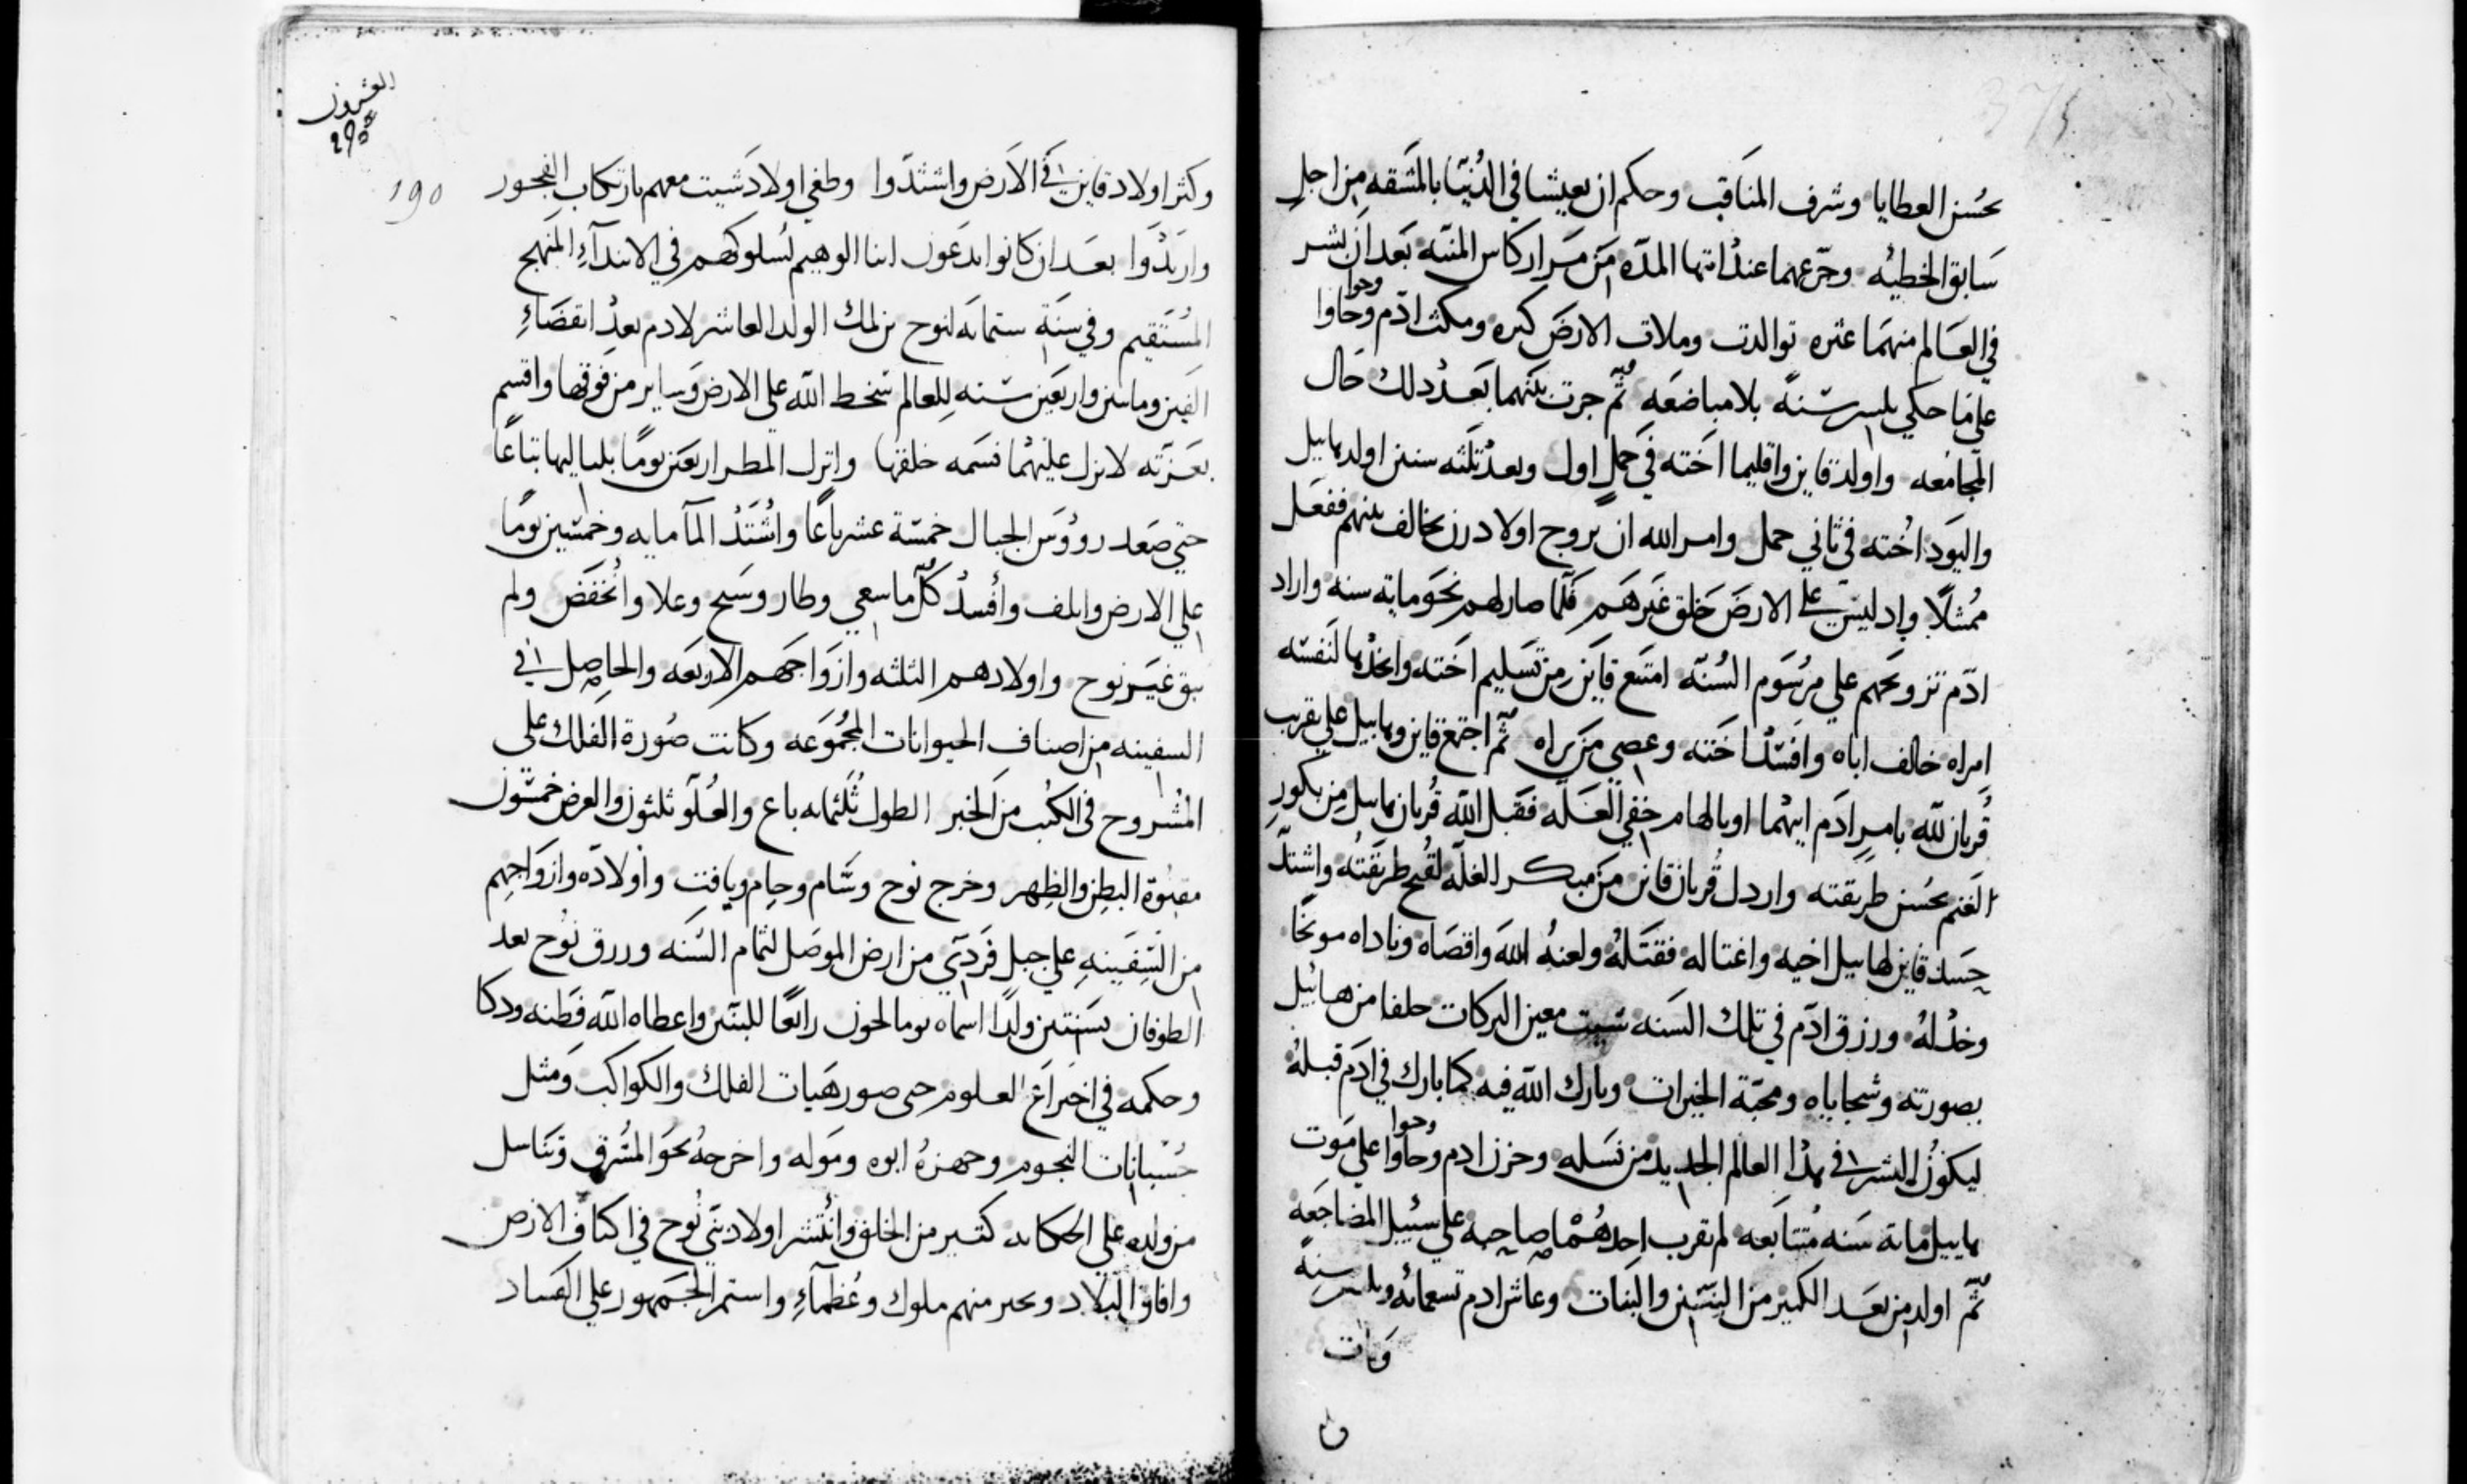 بحُسن العطايا وشرف المناقب وحكم ان يعيشا في الدُنيا بالمشقه من اجل
سابق الخطيه وجرعهما عند انتها المدّه من مَرار كاس المنيّه بعد ان نشر
في العالم منهما عتره توالدت وملات الارض كثره ومكث ادم وحاوا
وحوا
علي ما حكي ثلثين سنةً بلا مباضعه ثُمّ جرت بينهما بعد ذلك حال
المجامعه واولد قاين واقليما اخته في حملٍ اول وبعد ثلثه سنين اولد هابيل
واليَود اخته في ثاني حمل وامر الله ان يزوج اولاد رزن يخالف بينهم ففعل
مُمثلًا وإذ ليس علي الارض خلق غيرهم فلمّا صار لهم نحو مايه سنه واراد
ادّم تزويجهم علي مرسُوم السُنّه امتنع قاين من تسليم اخته واتخذها لنفسه
امراه خالف اباه وافسد اخته وعصي من براه ثُمّ اجتمع قاين وهابيل علي تقريب
قُربان للّه بامر ادَم ابيهما او بالهام خفي العَلّه فقبل اللّه قُربان هابيل من بكور
الغنم بحُسن طريقته واردل قُربان قاين من مبكر الغلّه لقُبح طريقتُه واشتدّ
حسد قاين لهابيل اخيه واغتاله فقتلهُ ولعنهُ اللّه واقصاه وناداه موبخًا
وخذلهُ ورزق ادّم في تلك السَنه شيت معين البركات خلفا من هابيل
بصورته وسجاياه ومحبّة الخيرات وبارك اللّه فيه كما بارك في ادَم قبلهُ
ليكونُ البشر في هذا العالم الجديد من نسله وحزن ادم وحاوا علي مَوت
وحوا
هابيل ماية سَنه مُتتابعه لم يقرب احدهُما صاحبه علي سبيل المضاجعه
ثُمّ اولد من بعَد الكثير من البنين والبنات وعاش ادم تسعمائه وثلثين سنةً
وَمات
العشرون
190
وكثر اولاد قاين في الاَرض واشتدّوا وطغي اولاد شيت معهم بارتكاب الفجور
وارتدّوا بعَد ان كانوا يدعَون ابنا الوهيم لسُلوكهم في الابتدآءِ المنهج
المُستقيم وفي سنَة ستمايه لنوح بن لمك الولد العاشر لادم بعد انقضاءِ
الفين وماتين واربعين سَنه للعالم سخط اللّه علي الارض وساير من فوقها واقسم
بعَزّته لا نزل عليهما نسَمه خلقها وانزل المطر اربعين يومًا بلياليها تباعًا
حتي صَعد روُوس الجبال خمسَة عشر باعًا واُشتدْ المآ مايه وخمسين يومًا
علي الارض واتلف وأفسد كلّما سعي وطار وسَبح وعلا واُنخفض ولم
يبق غيَر نوح واولادهم الثلثه وازواجهم الاربعَه والحاصِل في
السفينه من اصناف الحيوانات المجمُوعَه وكانت صُورة الفلك علي
المشُروح في الكتب من الخبر الطول ثُلثمايه باع والعُلو ثلثون والعرض خمسُون
مقبوة البطِن والظهر وخرج نوح وسَام وحام ويافت واولاده وازواجهم
من السَفينهِ علي جبل قَردَي من ارض الموصل لتمام السَنه ورزق نُوح بعد
الطوفان بسَنتين ولدًا اسماه يوما لحون رابعًا للبنين واعطاه اللّه فطنه وذكا
وحكمه في اختراع العلوم حتي صور هَيات الفلك والكواكب ومَثل
حُسبانات النجوم وجهزهُ ابوه ومَوله واخرجهُ نحوَ المشُرق وتنَاسل
من ولده علي الحكايه كثير من الخلق واُنتشر اولاد بَني نُوح في اكناف الارض
وافاق البلاد وتجبر منهم ملوك وعُظمآء واستمر الجَمهور علي الفساد